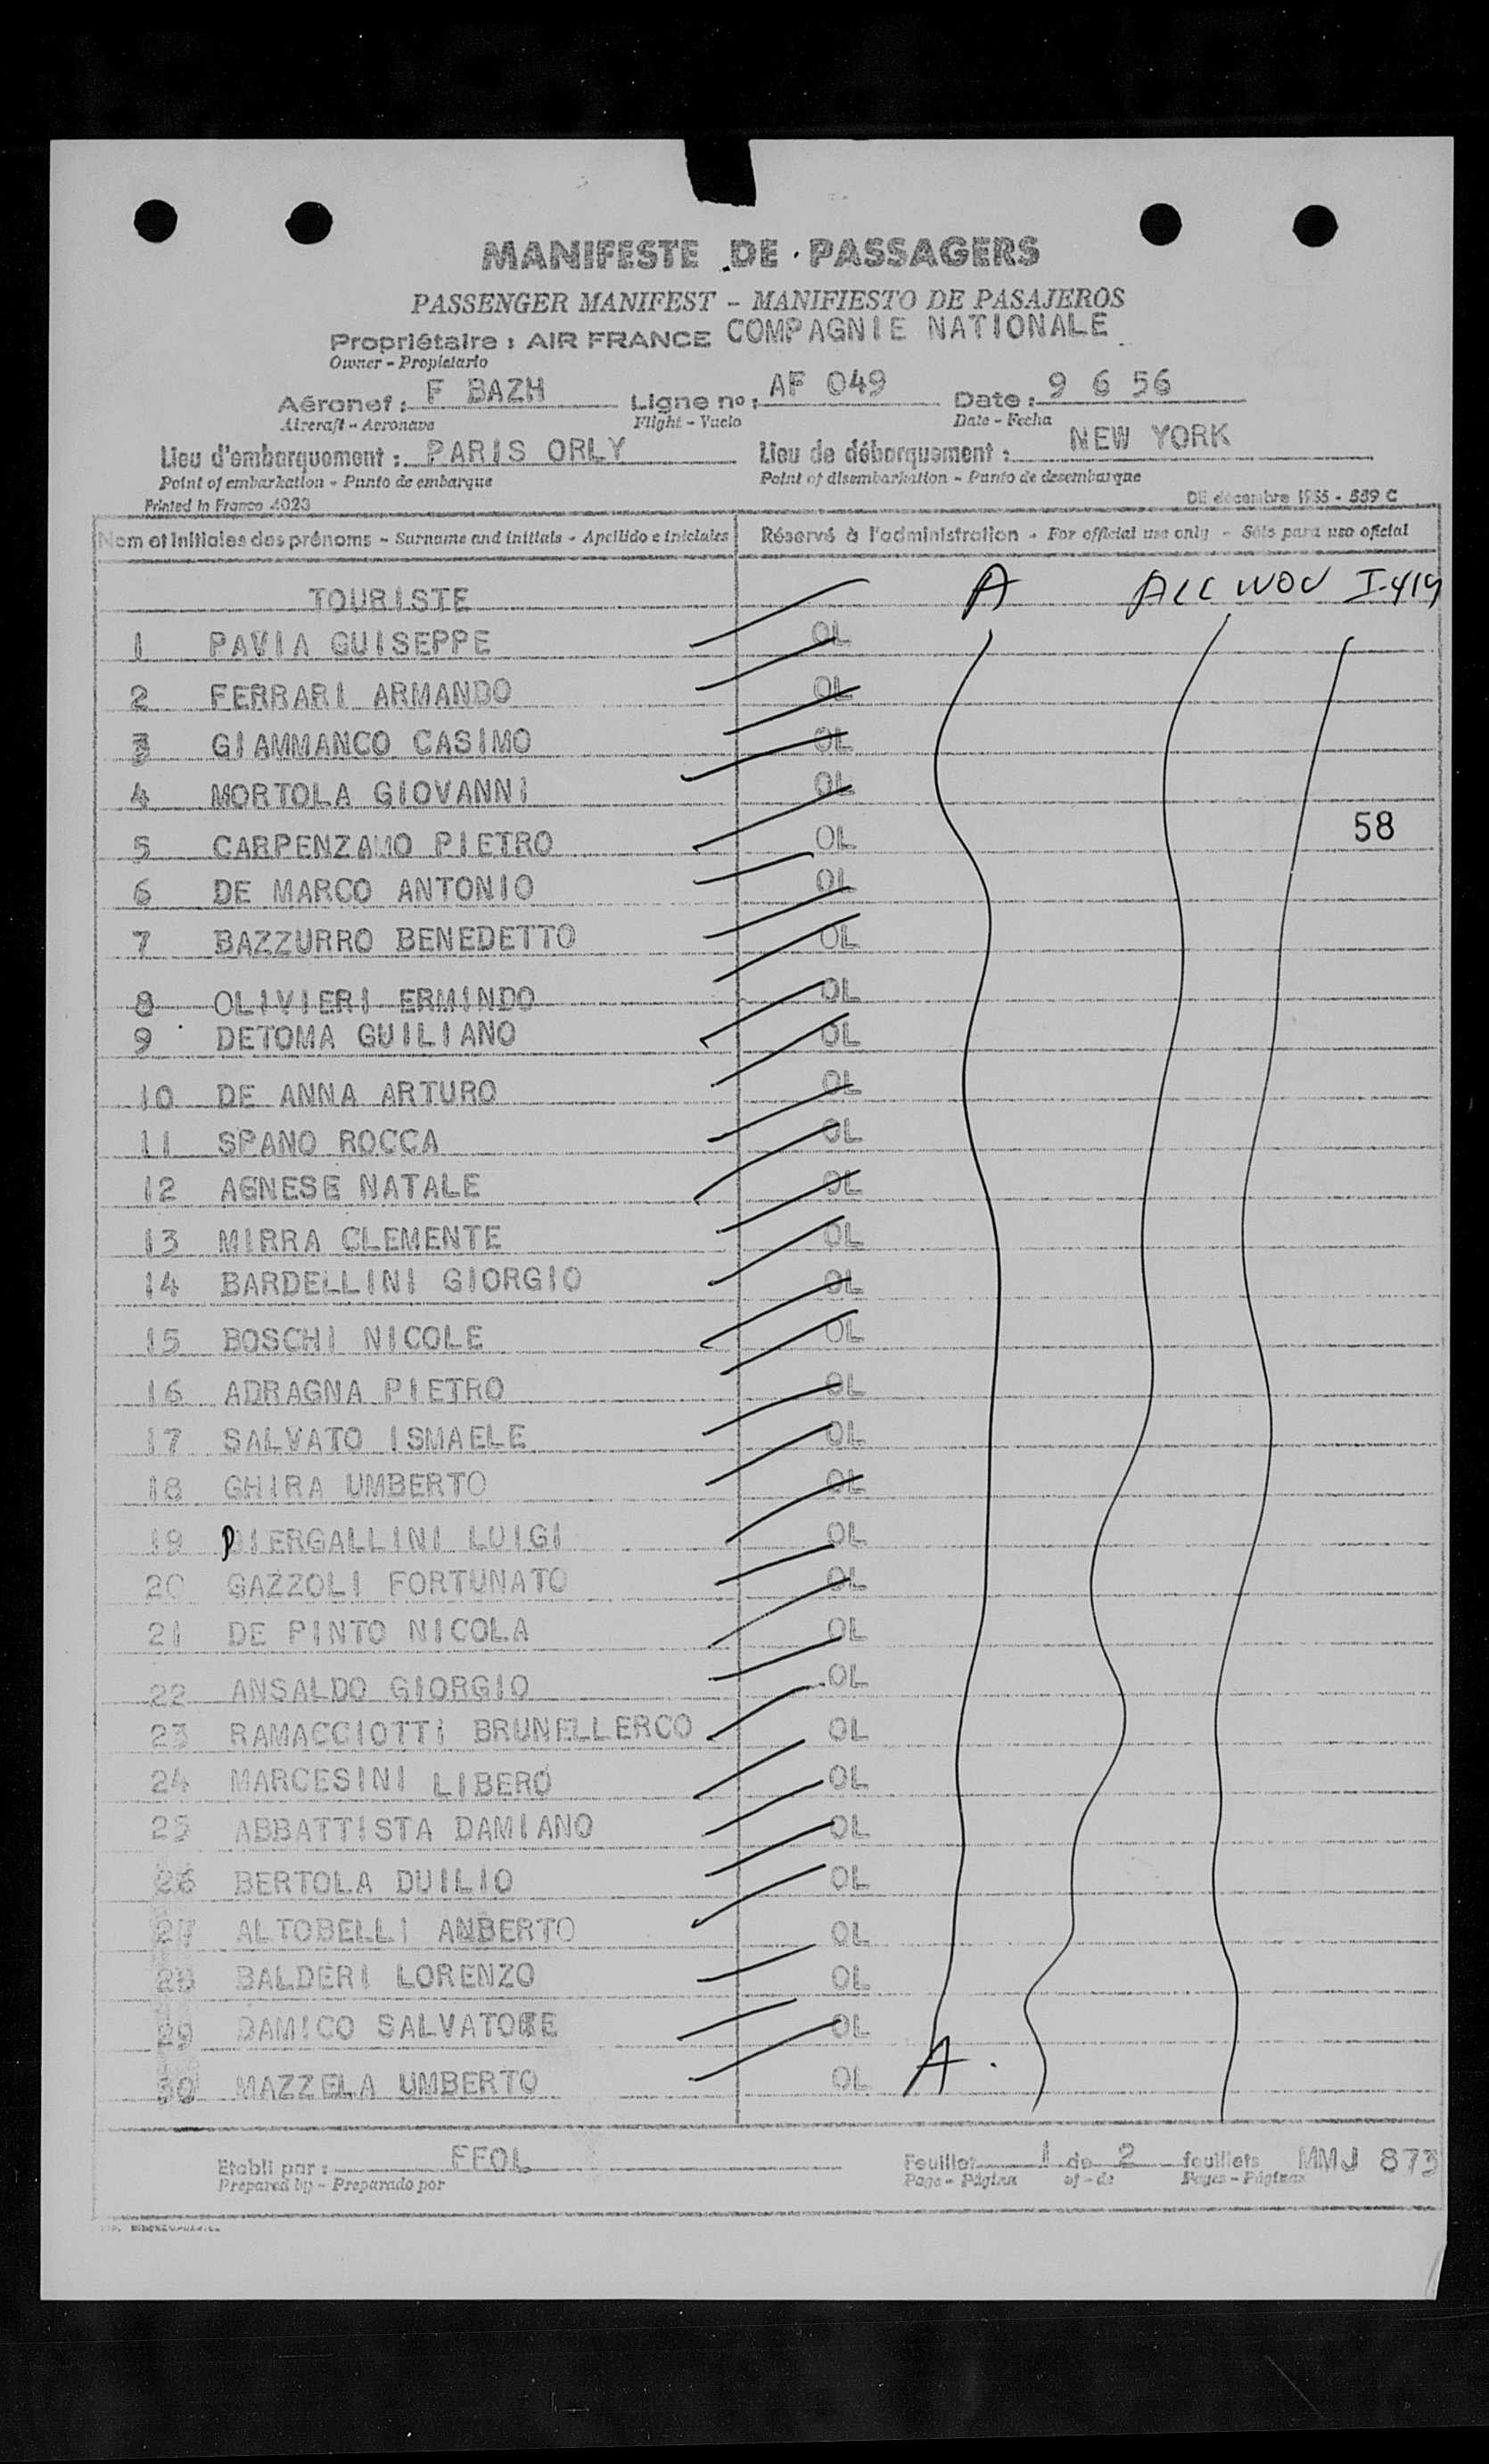 MANIFESTE DE PASSAGERS
PASSENGER MANIFEST - MANIFIESTO DE PASAJEROS
Propriétaire : AIR FRANCE COMPAGNIE NATIONALE
Owner - Propietario
Aéronef : F BAZH Ligne no : AF 049 Date : 9 6 56
Aircraft - Aeronave Flight - Vuelo Date - Fecha
Lieu d'embarquement : PARIS ORLY Lieu de débarquement : NEW YORK
Point of embarkation - Punto de embarque Point of disembarkation - Punto de desembarque
Printed in France 4023 DE décembre 1955 - 559 C
Nom et initiales des prénoms - Surname and initials - Apellido e iniciales Réservé à l'administration - For official use only - Sólo para uso oficial
TOURISTE A ALL NOV I-419
1 PAVIA GUISEPPE OL
2 FERRARI ARMANDO OL
3 GIAMMANCO CASIMO OL
4 MORTOLA GIOVANNI OL
5 CARPENZAMO PIETRO OL 58
6 DE MARCO ANTONIO OL
7 BAZZURRO BENEDETTO OL
8 OLIVIERI ERMINDO OL
9 DETOMA GUILIANO OL
10 DE ANNA ARTURO OL
11 SPANO ROCCA OL
12 AGNESE NATALE OL
13 MIRRA CLEMENTE OL
14 BARDELLINI GIORGIO OL
15 BOSCHI NICOLE OL
16 ADRAGNA PIETRO OL
17 SALVATO ISMAELE OL
18 GHIRA UMBERTO OL
19 PIERGALLINI LUIGI OL
20 GAZZOLI FORTUNATO OL
21 DE PINTO NICOLA OL
22 ANSALDO GIORGIO OL
23 RAMACCIOTTI BRUNELLERCO OL
24 MARCESINI LIBERO OL
25 ABBATTISTA DAMIANO OL
26 BERTOLA DUILIO OL
27 ALTOBELLI ANBERTO OL
28 BALDERI LORENZO OL
29 DAMICO SALVATORE OL
30 MAZZELA UMBERTO OL A.
Etabli par : FFOL Feuillet 1 de 2 feuillets MMJ 873
Prepared by - Preparado por Page - Página of - de Pages - Páginas